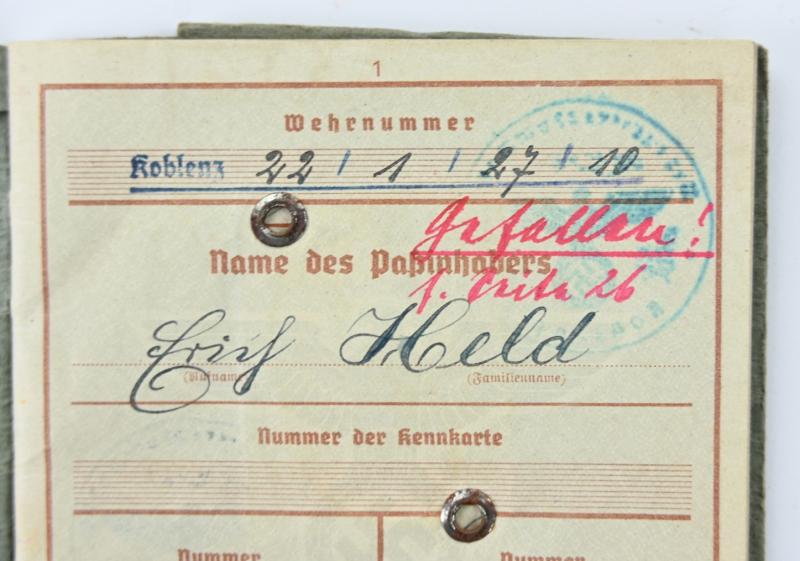 1
Wehrnummer
Koblenz 22 / 1 / 27 / 10
Gefallen!
Name des Paßinhabers
s. Seite 26
Erich Held
(Rufname) (Familienname)
Nummer der Kennkarte
Nummer Nummer